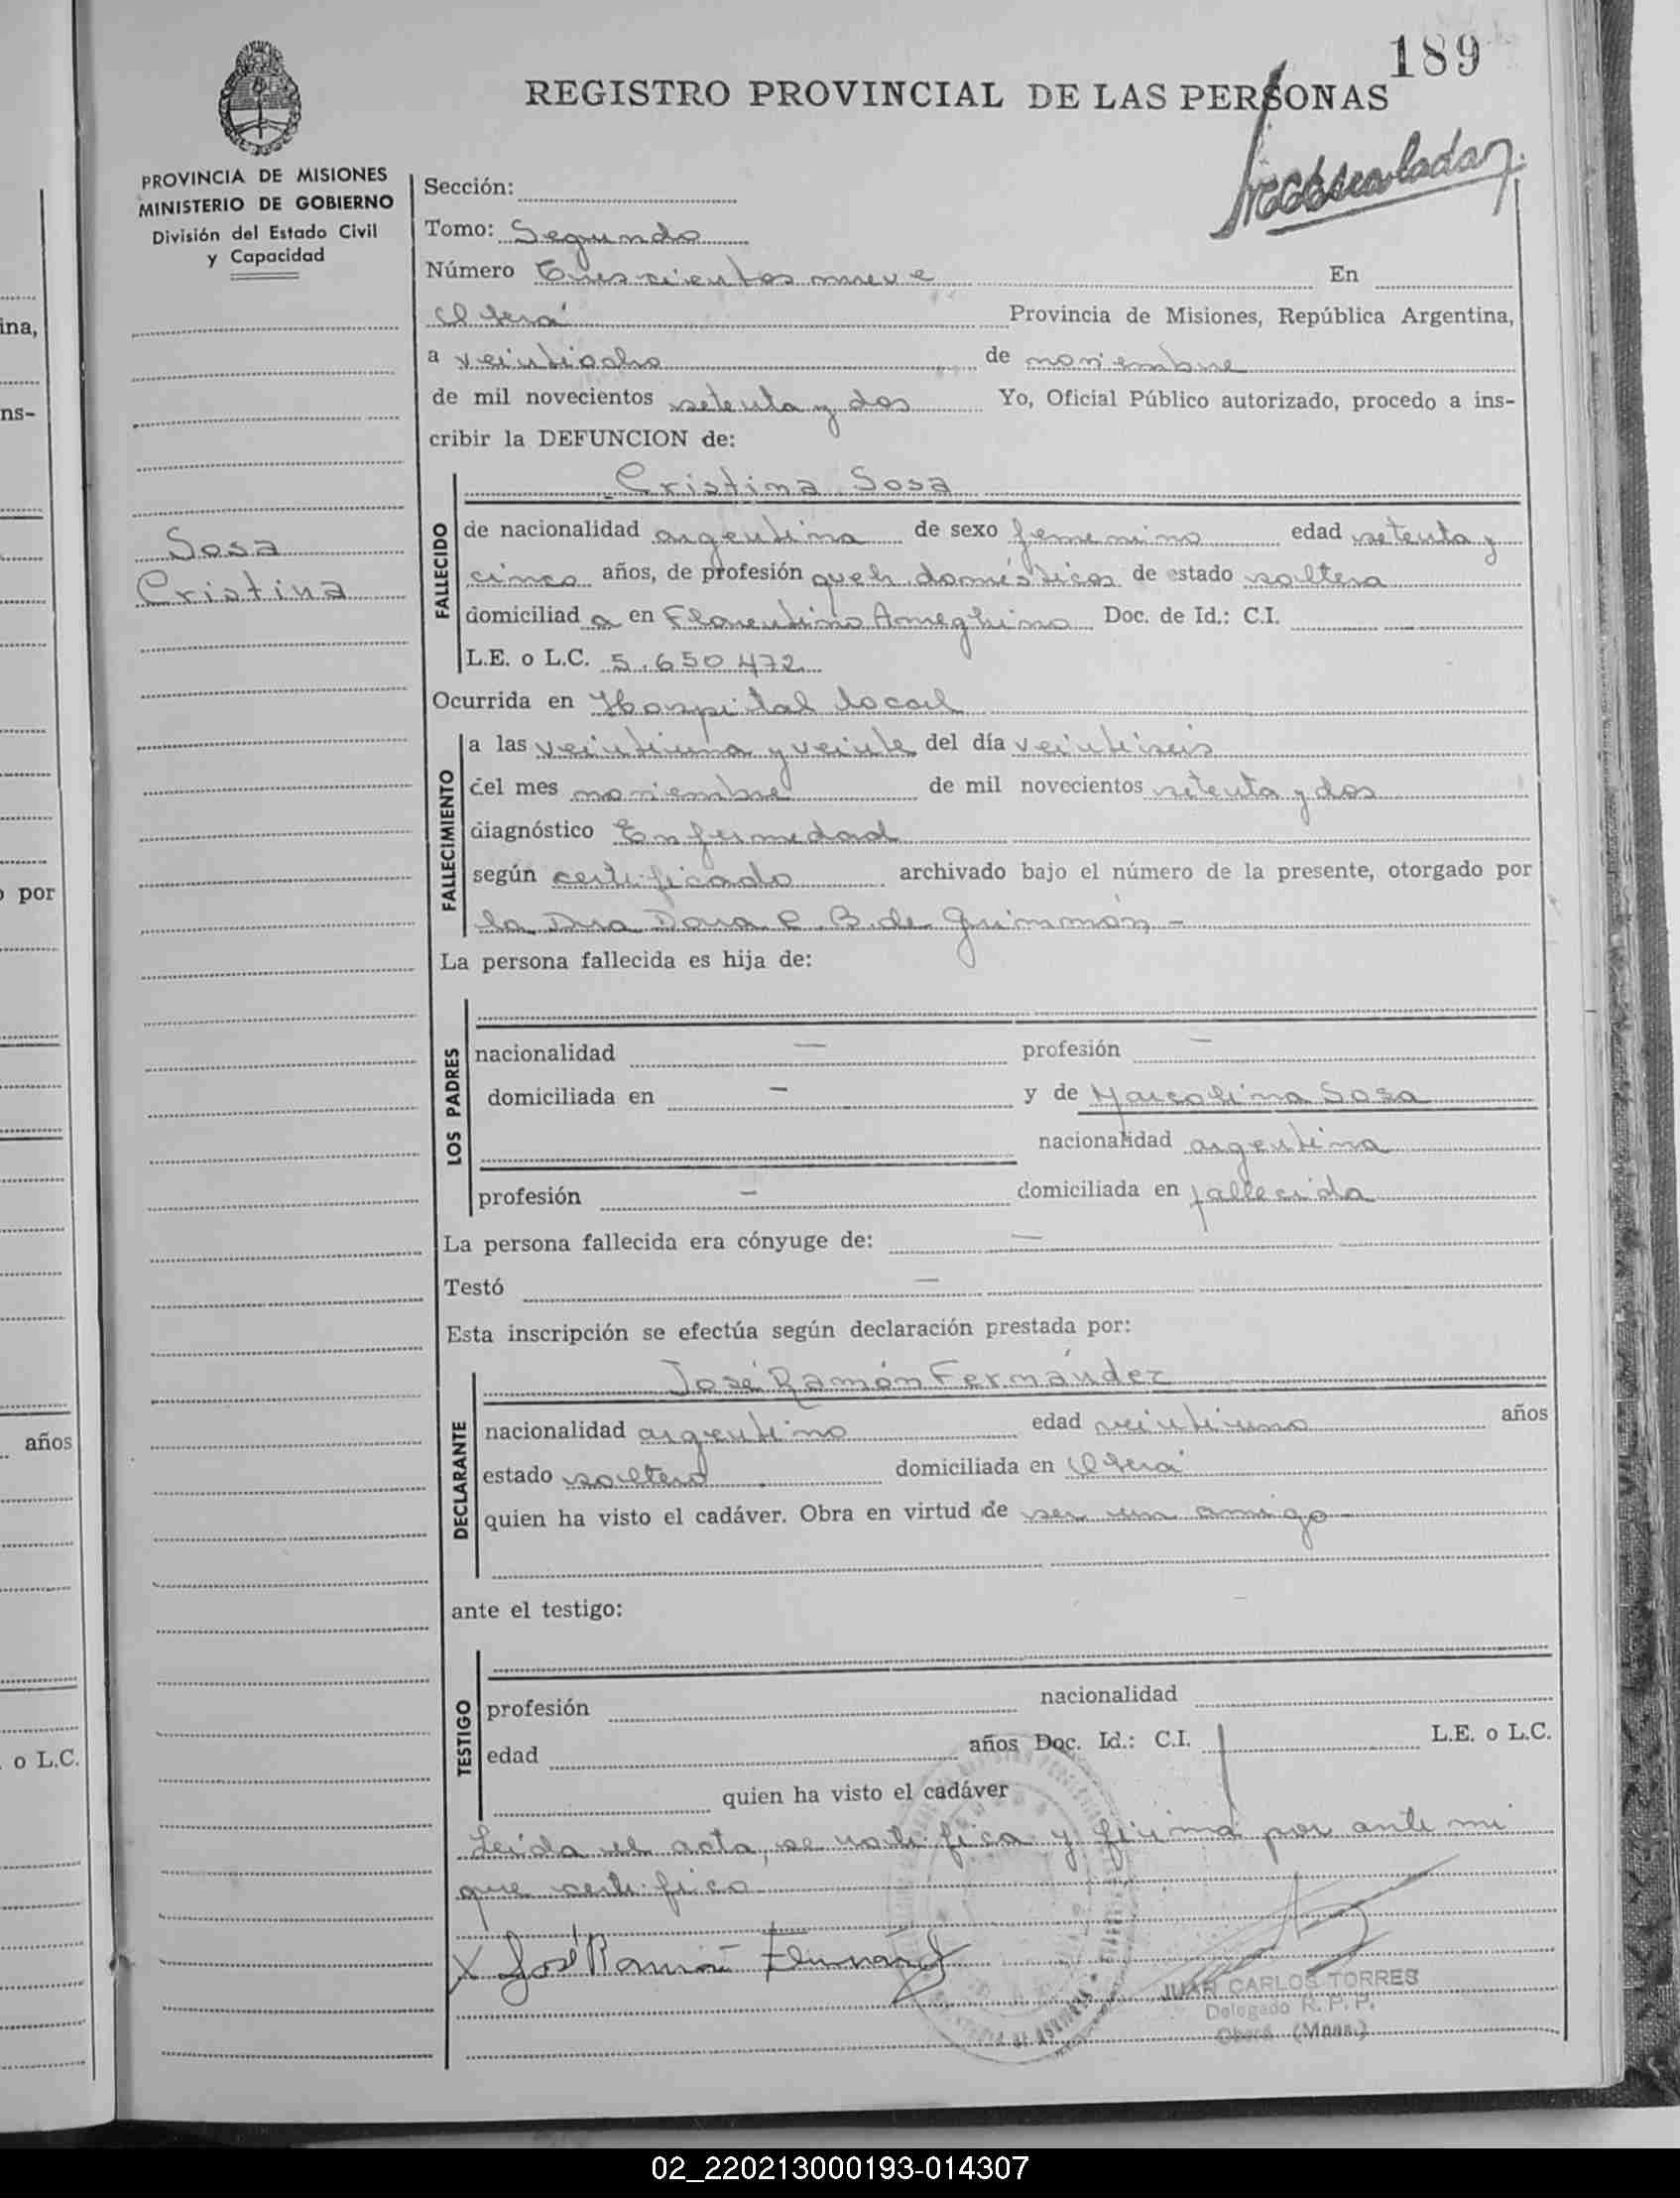 189
REGISTRO PROVINCIAL DE LAS PERSONAS
PROVINCIA DE MISIONES
MINISTERIO DE GOBIERNO
División del Estado Civil
y Capacidad
Sosa
Cristina
Sección:
Tomo: Segundo
Número Trescientos nueve En
Oberá Provincia de Misiones, República Argentina,
a veintiocho de noviembre
de mil novecientos setenta y dos Yo, Oficial Público autorizado, procedo a ins-
cribir la DEFUNCION de:
FALLECIDO
Cristina Sosa
de nacionalidad argentina de sexo femenino edad setenta y
cinco años, de profesión queh. domésticos de estado soltera
domiciliad a en Florentino Ameghino Doc. de Id.: C.I.
L.E. o L.C. 5.650.472
Ocurrida en Hospital local
FALLECIMIENTO
a las veintiuna y veinte del día veintiseis
del mes noviembre de mil novecientos setenta y dos
diagnóstico Enfermedad
según certificado archivado bajo el número de la presente, otorgado por
la Dra Dora C. B. de
La persona fallecida es hija de:
LOS PADRES
nacionalidad — profesión —
domiciliada en — y de Marcolina Sosa
nacionalidad argentina
profesión — domiciliada en fallecida
La persona fallecida era cónyuge de: —
Testó —
Esta inscripción se efectúa según declaración prestada por:
DECLARANTE
José Ramón Fernández
nacionalidad argentino edad veintiuno años
estado soltero domiciliada en Oberá
quien ha visto el cadáver. Obra en virtud de ser un amigo
ante el testigo:
TESTIGO
profesión nacionalidad
edad años Doc. Id.: C.I. L.E. o L.C.
quien ha visto el cadáver
Leida el acta, se ratifica y firma por ante mi
que certifico
X José Ramón
JUAN CARLOS TORRES
Delegado R. P. P.
Oberá (Mnes.)
ina,
ns-
o por
años
o L.C.
02_220213000193-014307